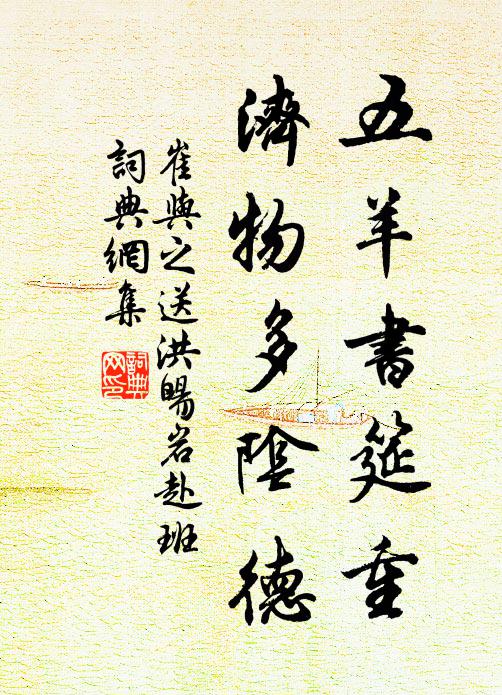 五羊書筵重
濟物多陰德
崔與之送洪暘岩赴班
詞典網集
詞典网印